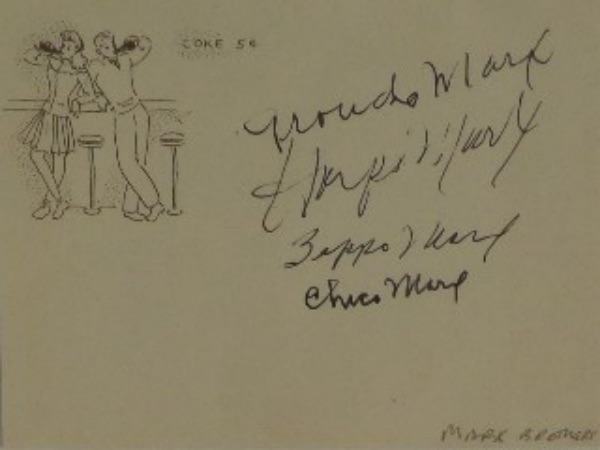 COKE 5¢
Groucho Marx
Harpo Marx
Zeppo Marx
Chico Marx
MARX BROTHERS